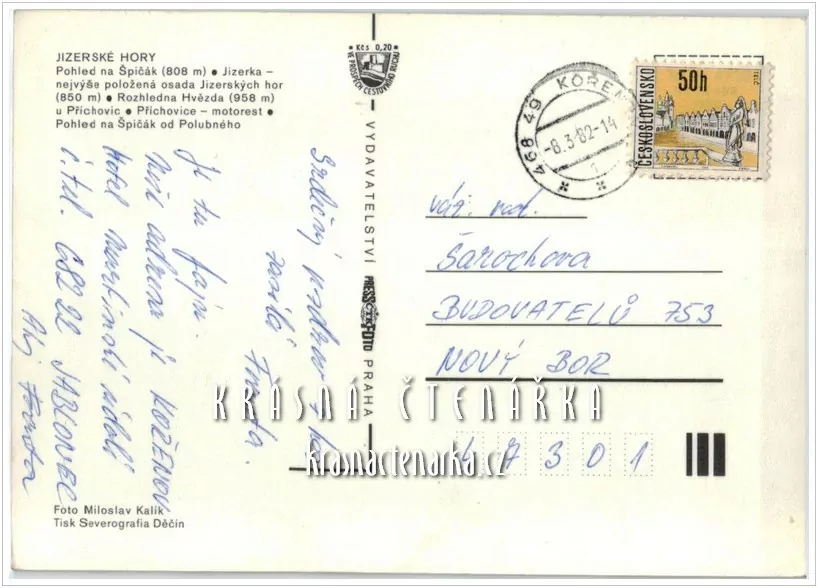 JIZERSKÉ HORY
Pohled na Špičák (808 m) ● Jizerka –
nejvýše položená osada Jizerských hor
(850 m) ● Rozhledna Hvězda (958 m)
u Příchovic ● Příchovice – motorest ●
Pohled na Špičák od Polubného
Kčs 0,20
VE PROSPĚCH CESTOVNÍHO RUCHU
VYDAVATELSTVÍ PRESSFOTO PRAHA
468 49 KOŘEN
-8.3.82-14
1
ČESKOSLOVENSKO
50h
TELČ
Srdečný
zasílá
Je tu fajn
adresa je KOŘENOV
Hotel
č. tel. 682 22 JABLONEC
Ahoj
váž. rod.
Šarochova
BUDOVATELŮ 753
NOVÝ BOR
47301
KRÁSNÁ ČTENÁŘKA
krasnactenarka.cz
Foto Miloslav Kalík
Tisk Severografia Děčín